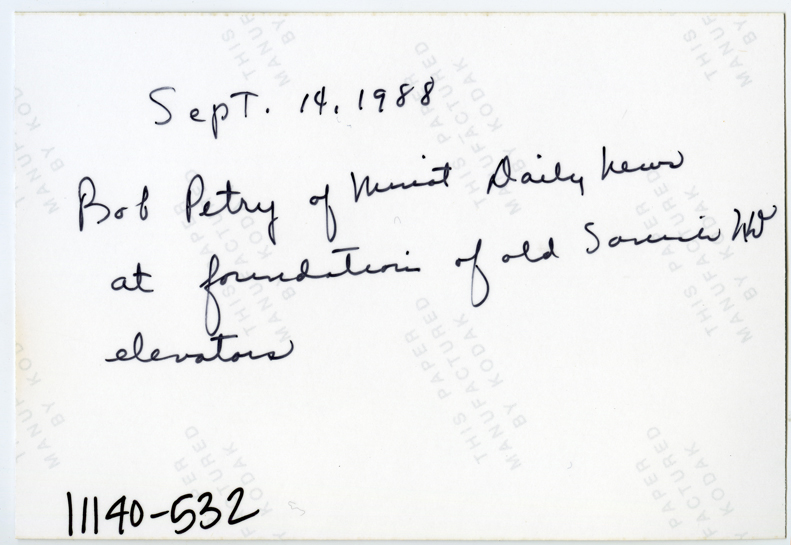 Sept. 14, 1988
Bob Petry of Minot Daily News
at foundation of old Sannie ND
elevators
11140-532
THIS PAPER
MANUFACTURED
BY KODAK